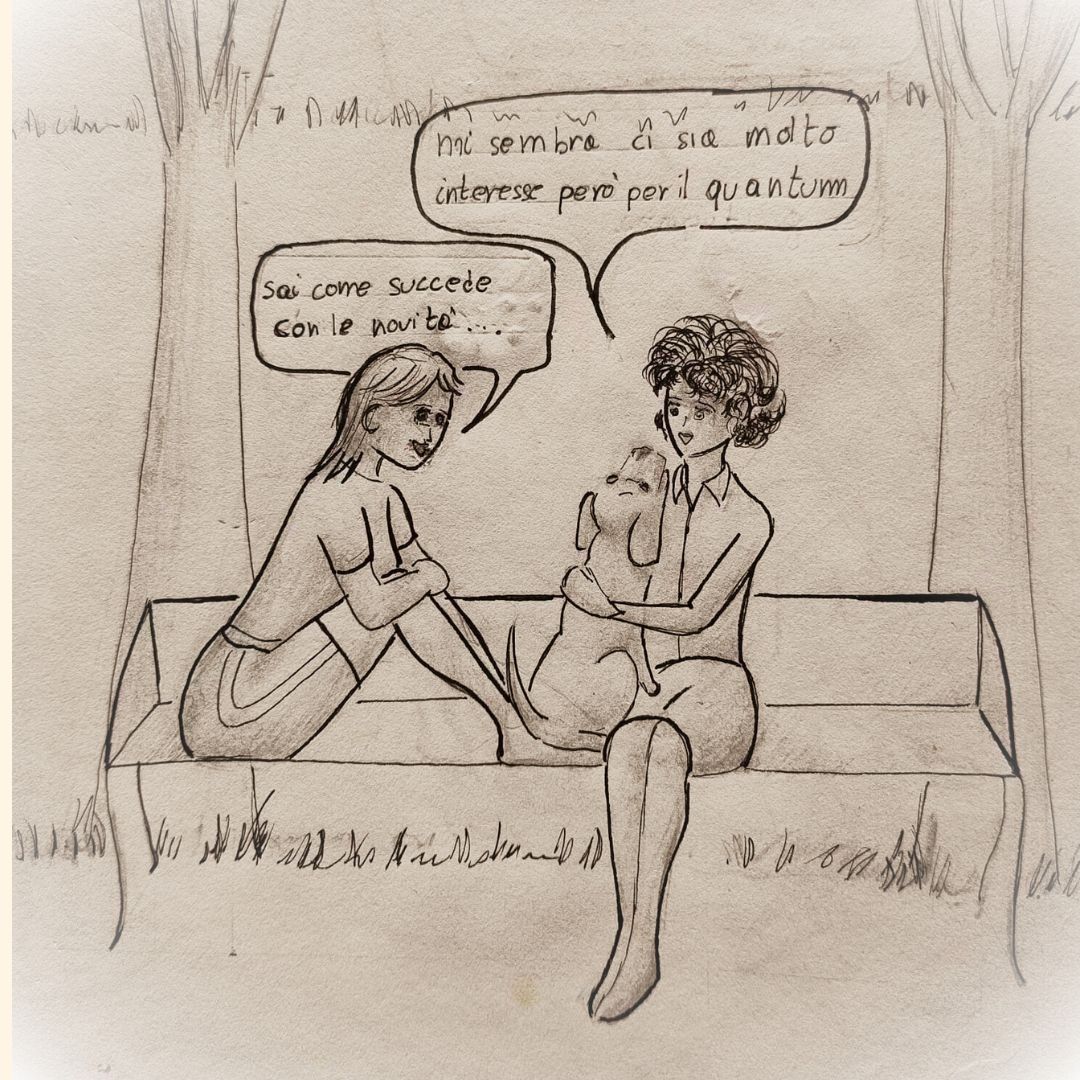 mi sembra ci sia molto
interesse però per il quantum
sai come succede
con le novità...